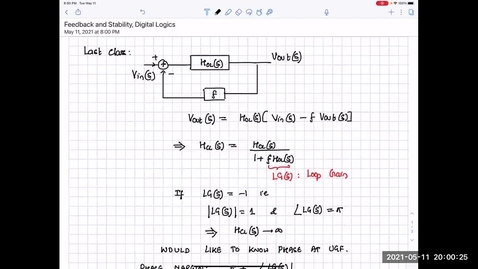 8:00 PM Tue May 11
Feedback and Stability, Digital Logics
May 11, 2021 at 8:00 PM
Last class:
H_OL(s)
Vout(s)
+
+
Vin(s)
−
f
Vout(s) = H_OL(s) [ Vin(s) − f Vout(s)]
⇒ H_CL(s) = H_OL(s) / 1 + f H_OL(s)
LG(s) : Loop Gain
If LG(s) = −1 ie
|LG(s)| = 1 & ∠LG(s) = π
⇒ H_CL(s) → ∞
WOULD LIKE TO KNOW PHASE AT UGF.
PHASE MARGIN:
2021-05-11 20:00:25